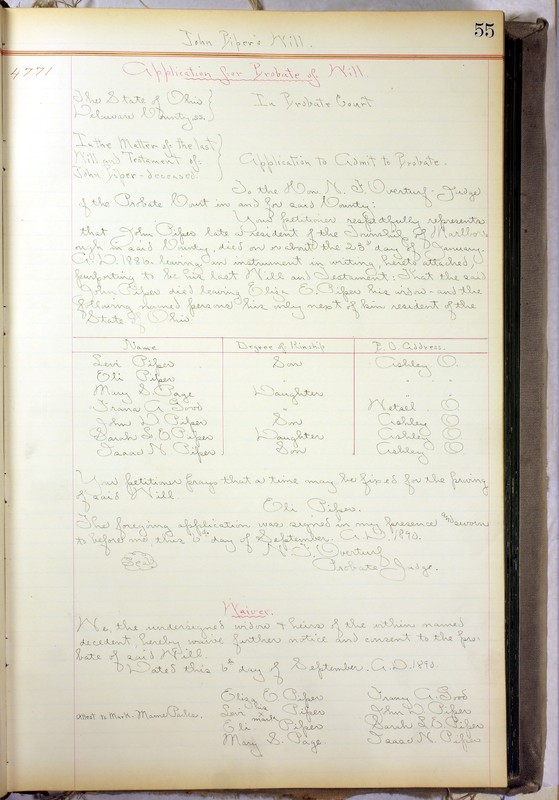 55
John Piper's Will.
4771
Application for Probate of Will.
The State of Ohio
Delaware County ss.
In Probate Court
In the Matter of the last
Will and Testament of
John Piper - deceased
Application to Admit to Probate.
To the Hon. N. F. Overturf - Judge
of the Probate Court in and for said County:
Your petitioner respectfully represents
that John Piper late a resident of the Township of Marlbor-
ough in said County, died on or about the 23rd day of January.
A.D. 1886 - leaving an instrument in writing, hereto attached,
purporting to be his last Will and Testament: That the said
John Piper died leaving Eliza E. Piper his widow - and the
following named persons his only next of kin resident of the
State of Ohio
Name Degree of Kinship P.O. Address.
Levi Piper Son Ashley O.
Eli Piper " " "
Mary S. Page Daughter " "
Good " Wetsel O
John D. Piper Son Ashley O
Sarah E. O. Piper Daughter Ashley O
Isaac N. Piper Son Ashley O
Your petitioner prays that a time may be fixed for the proving
of said Will
Eli Piper.
The foregoing application was signed in my presence and sworn
to before me this 6th day of September. A.D. 1890.
Seal
N. F. Overturf
Probate Judge.
Waiver.
We, the undersigned widow & heirs of the within named
decedent, hereby waive further notice and consent to the pro-
bate of said Will.
Dated this 6th day of September. A.D. 1890.
Eliza E. Piper
Levi his mark Piper
Attest to Mark - Mame
Eli Piper
Mary S. Page.
Good
John D. Piper
Sarah E. O. Piper
Isaac N. Piper